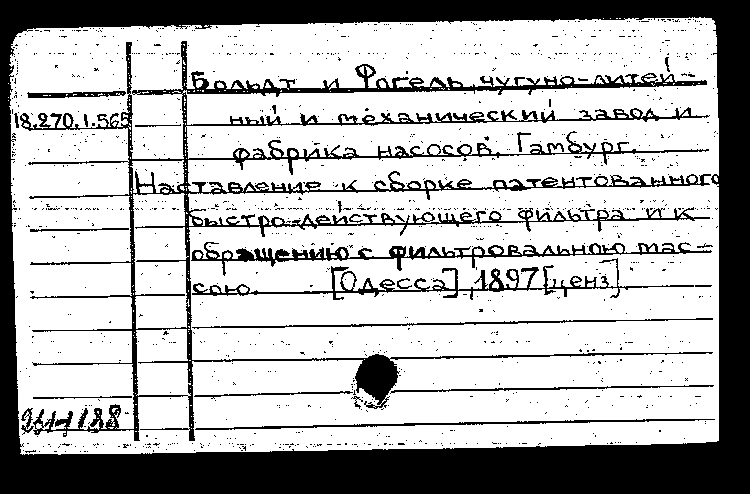 Больдт и Фогель, чугуно-литей-
18.270.1.565
ный и механический завод и
фабрика насосов. Гамбург.
Наставление к сборке патентованного
быстро-действующего фильтра и к
обращению с фильтровальною мас-
сою. [Одесса], 1897 [ценз].